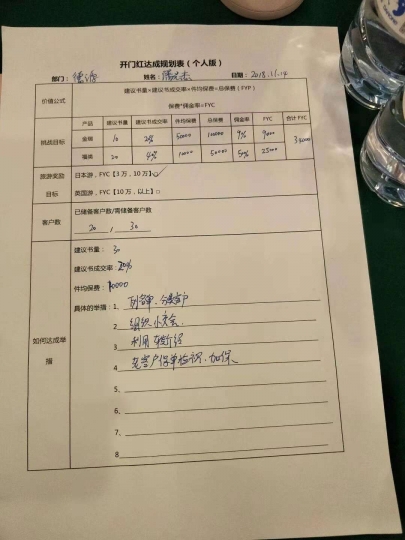 开门红达成规划表（个人版）
部门： 姓名： 日期：2018.11.14
价值公式
建议书量×建议书成交率×件均保费=总保费（FYP）
保费*佣金率=FYC
挑战目标
产品 建议书量 建议书成交率 件均保费 总保费 佣金率 FYC 合计 FYC
10 20% 50000 100000 9% 9000
20 10000 50000 50% 25000
旅游奖励目标
日本游，FYC【3万，10万】
英国游，FYC【10万，以上】□
客户数
已储备客户数/需储备客户数
20 / 30
如何达成举措
建议书量：30
建议书成交率：20%
件均保费：10000
具体的举措：1、列名单、分类客户
2、组织小交会
3、利用
4、老客户保单检视、加保
5、
6、
7、
8、